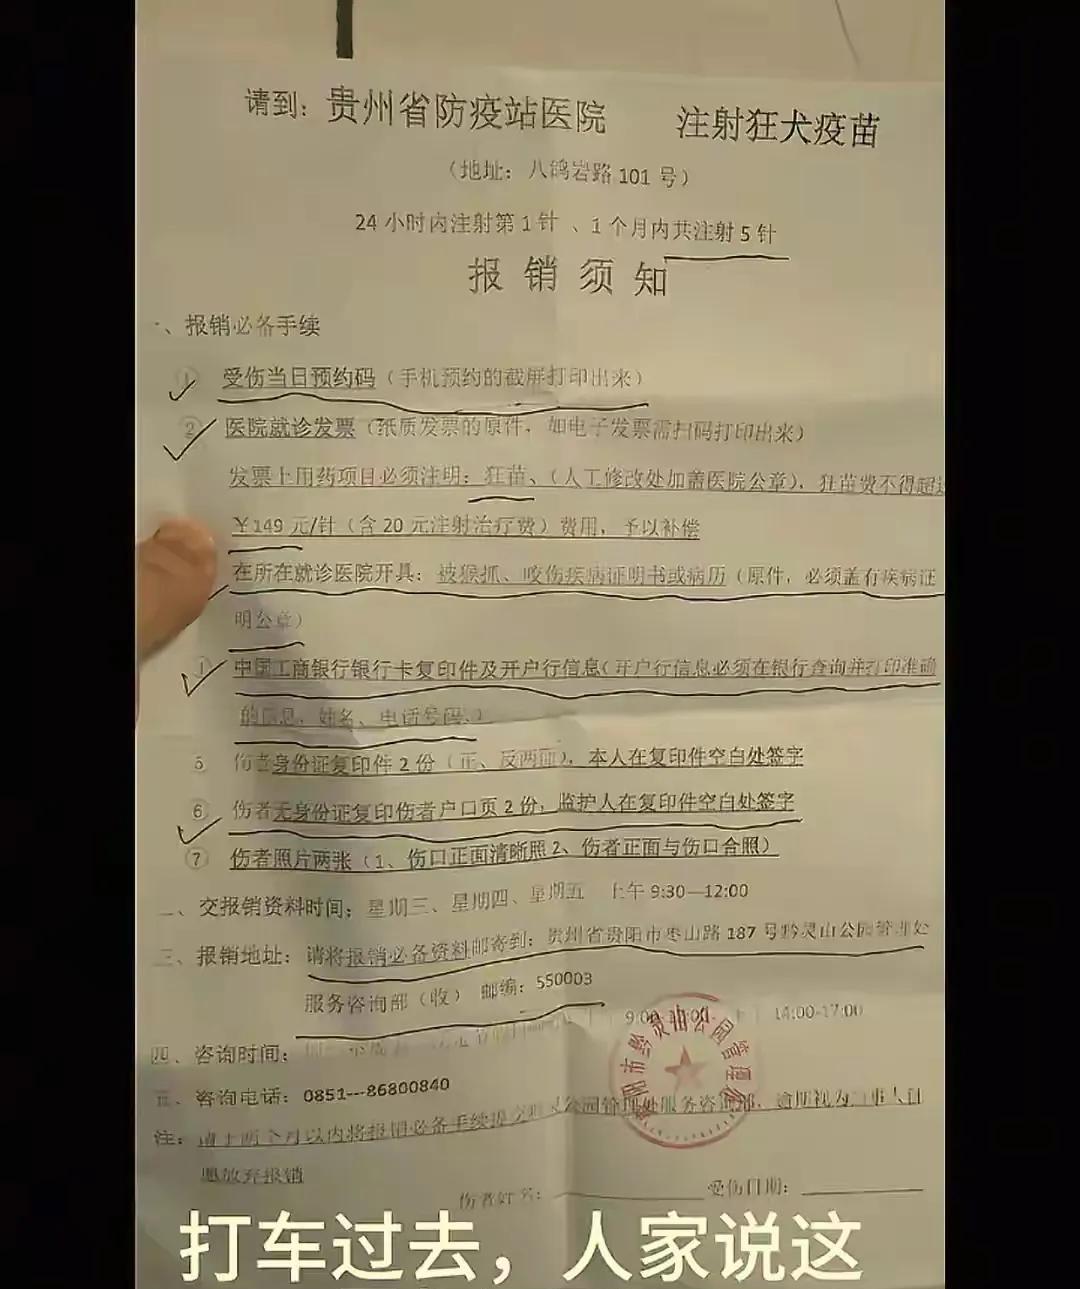 请到：贵州省防疫站医院 注射狂犬疫苗
（地址：八鸽岩路101号）
24小时内注射第1针、1个月内共注射5针
报销须知
一、报销必备手续
① 受伤当日预约码（手机预约的截屏打印出来）
② 医院就诊发票（纸质发票的原件，如电子发票需扫码打印出来）
发票上用药项目必须注明：狂苗、（人工修改处加盖医院公章），狂苗费不得超过
￥149元/针（含20元注射治疗费）费用，予以补偿
在所在就诊医院开具：被猴抓、咬伤疾病证明书或病历（原件，必须盖有疾病证
明公章）
中国工商银行银行卡复印件及开户行信息（开户行信息必须在银行查询并打印准确
的信息，姓名、电话号码。）
5 伤者身份证复印件2份（正、反两面），本人在复印件空白处签字
⑥ 伤者无身份证复印伤者户口页2份，监护人在复印件空白处签字
⑦ 伤者照片两张（1、伤口正面清晰照2、伤者正面与伤口合照）
二、交报销资料时间：星期三、星期四、星期五 上午9:30—12:00
三、报销地址：请将报销必备资料邮寄到：贵州省贵阳市枣山路187号黔灵山公园管理处
服务咨询部（收） 邮编：550003
四、咨询时间： 14:00-17:00
五、咨询电话：0851---86800840
注：请于两个月以内将报销必备手续提交 公园管理处服务咨询部，逾期视为当事人自
愿放弃报销
伤者姓名： 受伤日期：
黔灵山公园管理
打车过去，人家说这